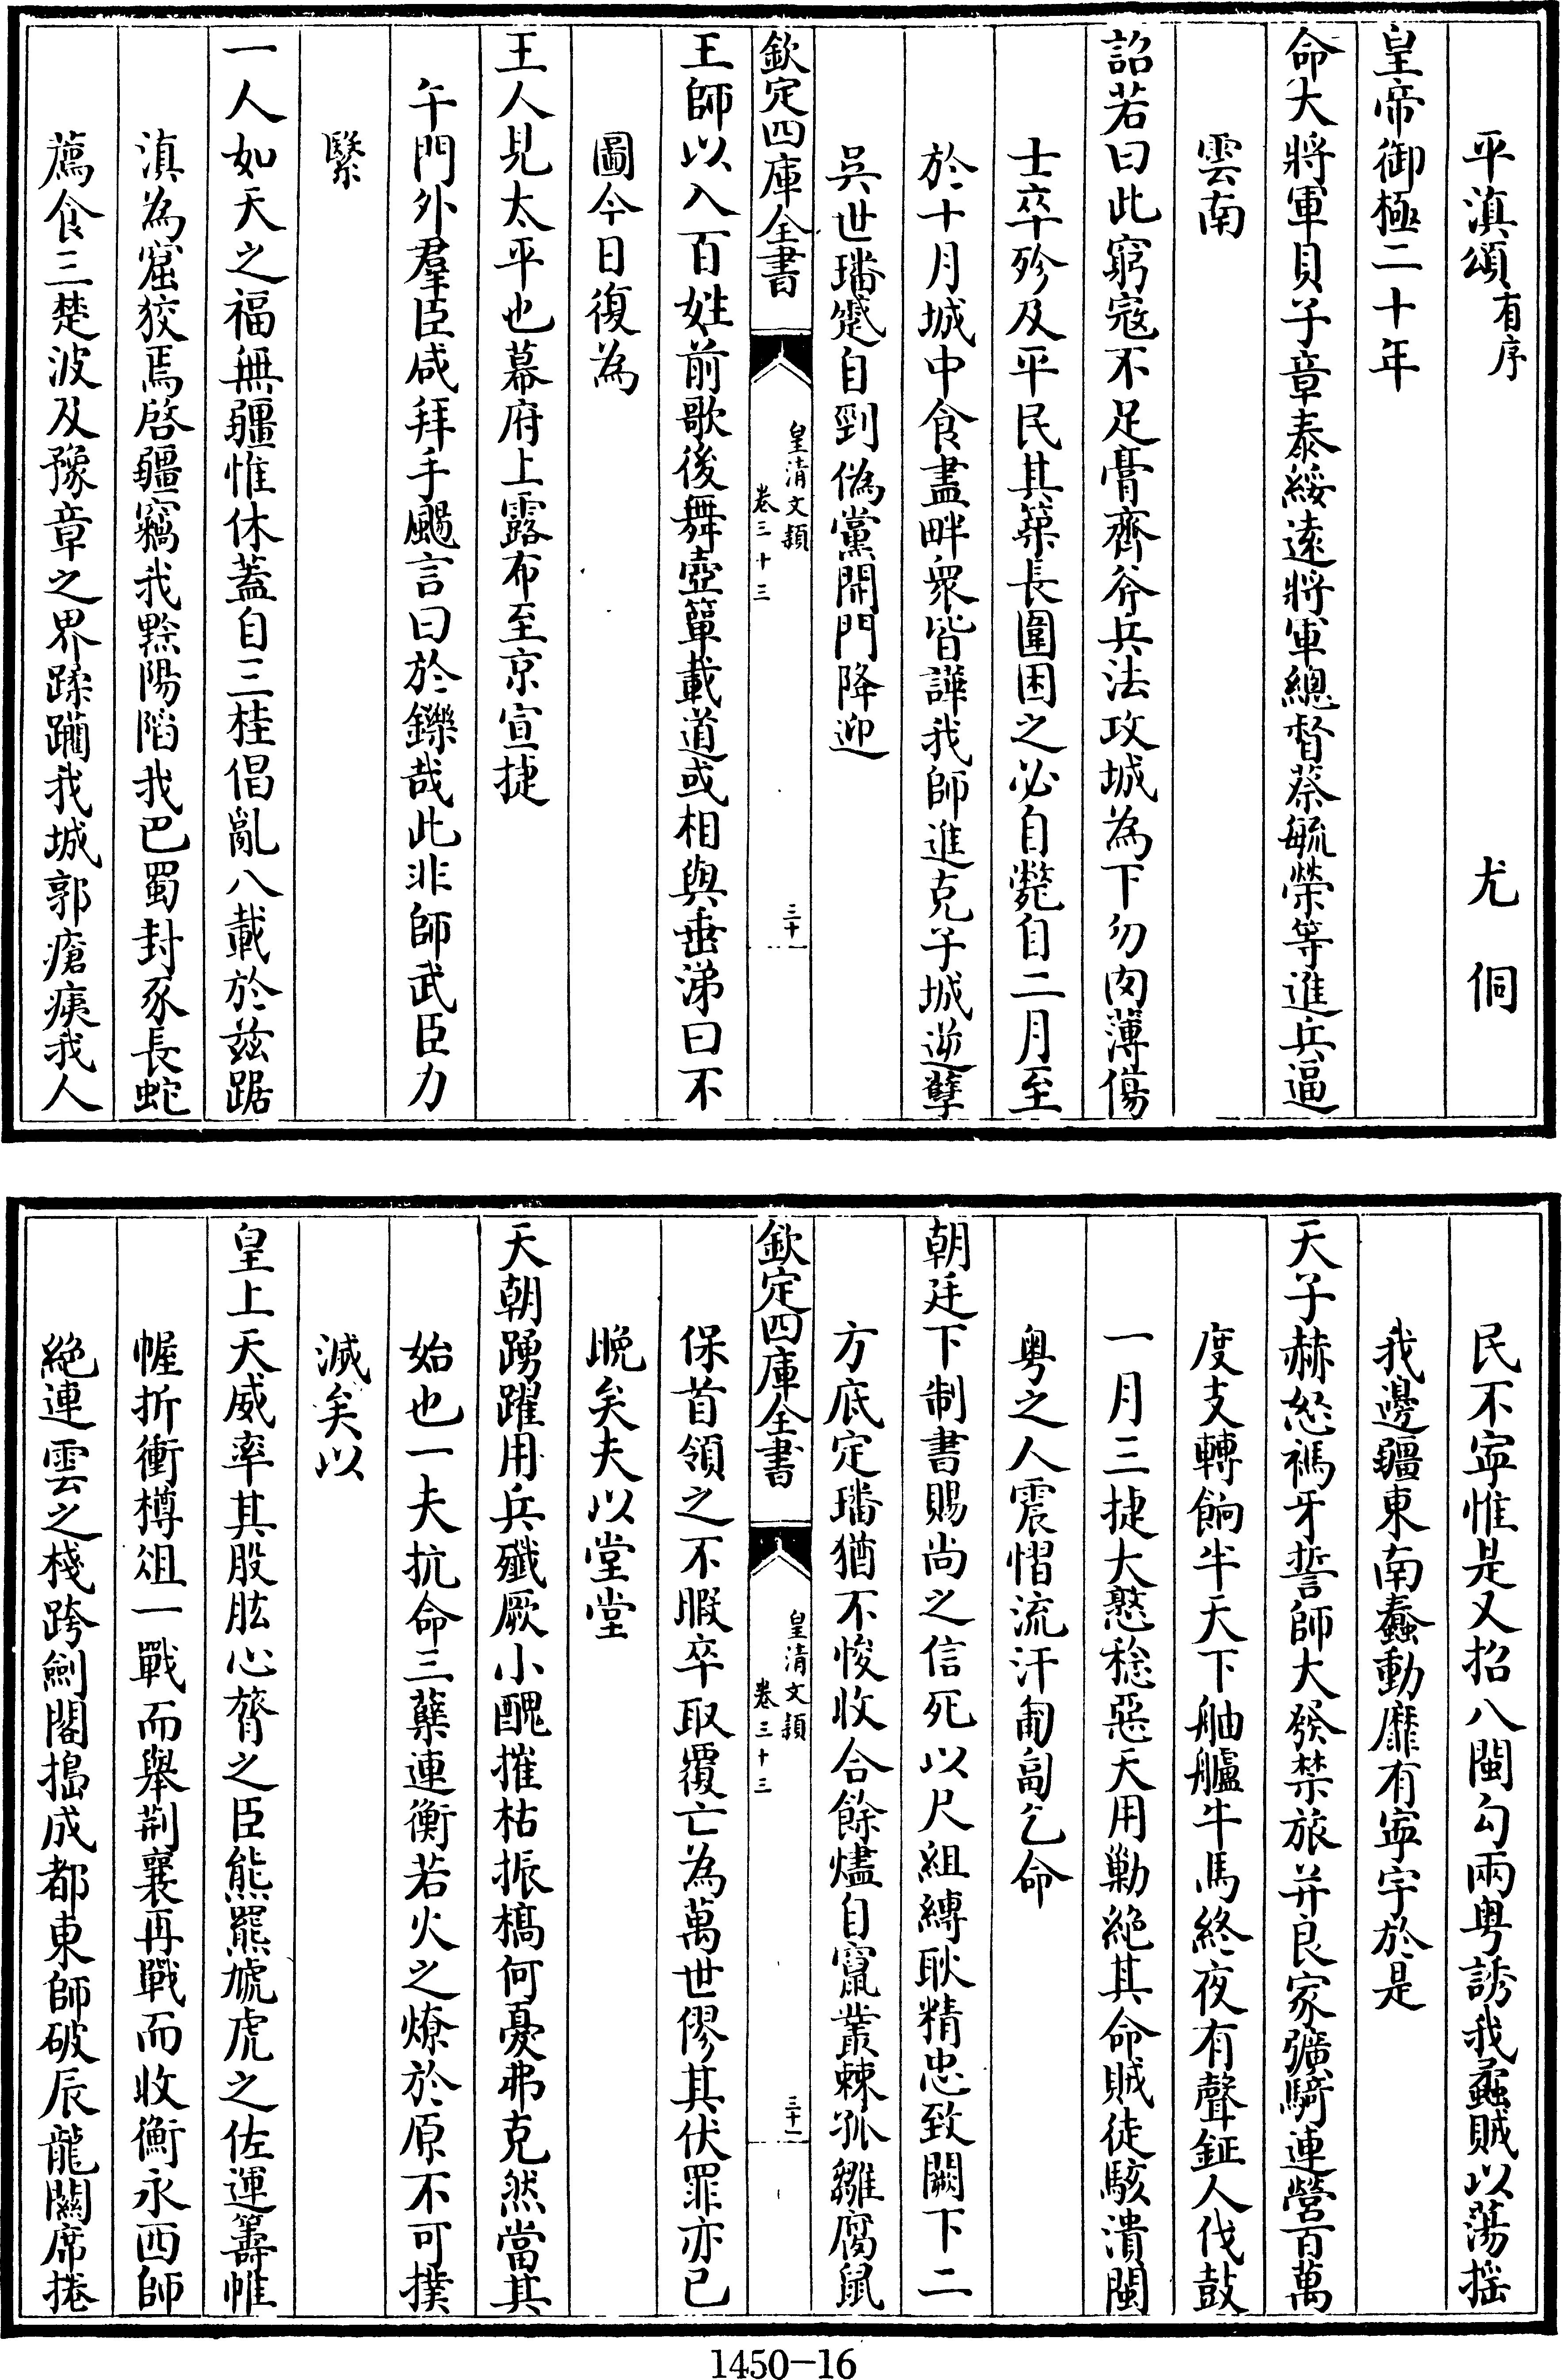 平滇頌有序　尤侗
皇帝御極二十年
命大將軍貝子章泰綏遠將軍總督蔡毓榮等進兵逼
雲南
詔若曰此窮寇不足膏齊斧兵法攻城為下勿肉薄傷
士卒殄及平民其築長圍困之必自斃自二月至
於十月城中食盡畔衆皆譁我師進克子城逆孽
吳世璠蹙自剄偽黨開門降迎
欽定四庫全書　皇清文穎　卷三十三　三十
王師以入百姓前歌後舞壺簞載道或相與垂涕曰不
圖今日復為
王人見太平也幕府上露布至京宣捷
午門外羣臣咸拜手颺言曰於鑠哉此非師武臣力
繄
一人如天之福無疆惟休蓋自三桂倡亂八載於兹踞
滇為窟狡焉啓疆竊我黔陽陷我巴蜀封豕長蛇
薦食三楚波及豫章之界蹂躪我城郭瘡痍我人
民不寜惟是又招八閩勾兩粤誘我蝥賊以蕩摇
我邊疆東南蠢動靡有寜宇於是
天子赫怒禡牙誓師大發禁旅并良家彍騎連營百萬
度支轉餉半天下舳艫牛馬終夜有聲鉦人伐鼓
一月三捷大憝稔惡天用勦絶其命賊徒駭潰閩
粤之人震慴流汗匍匐乞命
朝廷下制書賜尚之信死以尺組縛耿精忠致闕下二
方底定璠猶不悛收合餘燼自竄叢棘孤雛腐鼠
欽定四庫全書　皇清文穎　卷三十三　三十一
保首領之不暇卒取覆亡為萬世僇其伏罪亦已
晚矣夫以堂堂
天朝踴躍用兵殲厥小醜摧枯振槁何憂弗克然當其
始也一夫抗命三蘖連衡若火之燎於原不可撲
滅矣以
皇上天威率其股肱心膂之臣熊羆虓虎之佐運籌帷
幄折衝樽俎一戰而舉荆襄再戰而收衡永西師
絶連雲之棧跨劍閣搗成都東師破辰龍關席捲
1450-16